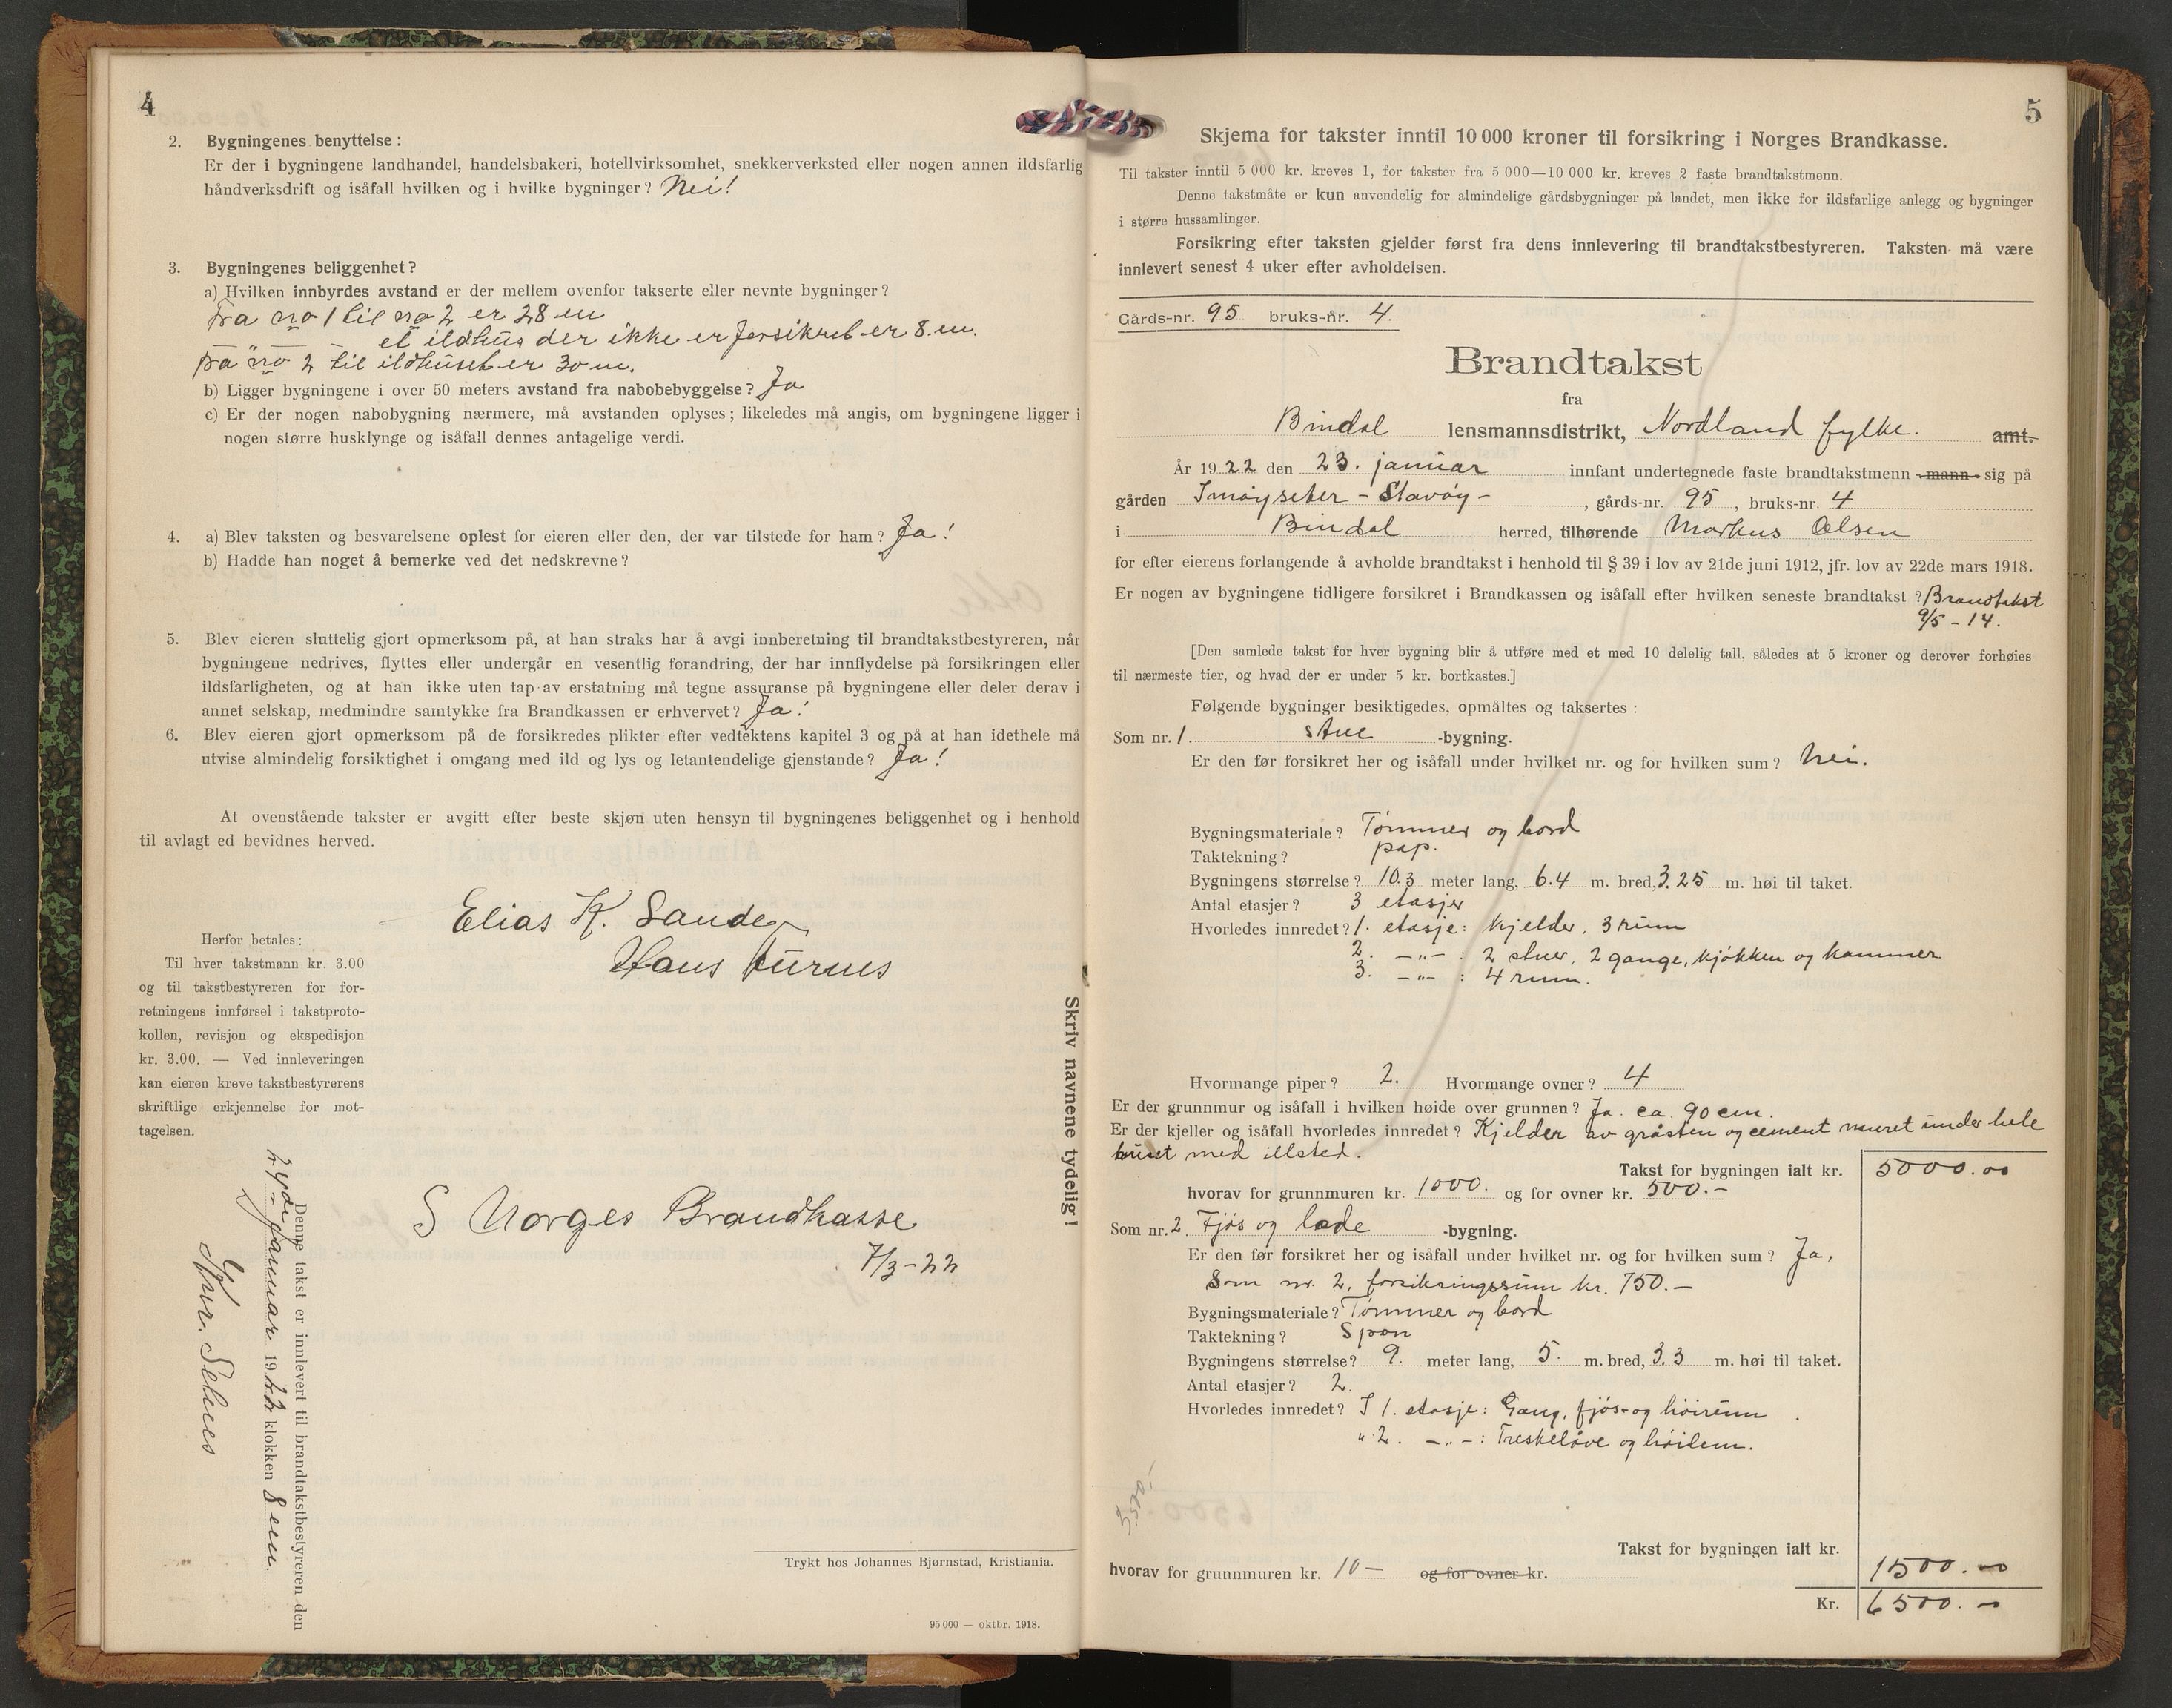 4
2. Bygningenes benyttelse :
Er der i bygningene landhandel, handelsbakeri, hotellvirksomhet, snekkerverksted eller nogen annen ildsfarlig
håndverksdrift og isåfall hvilken og i hvilke bygninger? Nei!
3. Bygningenes beliggenhet?
a) Hvilken innbyrdes avstand er der mellem ovenfor takserte eller nevnte bygninger?
Fra no 1 til no 2 er 28 m
— " — et ildhus der ikke er forsikret er 8. m.
Fra no 2 til ildhuset er 30 m.
b) Ligger bygningene i over 50 meters avstand fra nabobebyggelse? Ja
c) Er der nogen nabobygning nærmere, må avstanden oplyses; likeledes må angis, om bygningene ligger i
nogen større husklynge og isåfall dennes antagelige verdi.
4. a) Blev taksten og besvarelsene oplest for eieren eller den, der var tilstede for ham? Ja!
b) Hadde han noget å bemerke ved det nedskrevne?
5. Blev eieren sluttelig gjort opmerksom på, at han straks har å avgi innberetning til brandtakstbestyreren, når
bygningene nedrives, flyttes eller undergår en vesentlig forandring, der har innflydelse på forsikringen eller
ildsfarligheten, og at han ikke uten tap av erstatning må tegne assuranse på bygningene eller deler derav i
annet selskap, medmindre samtykke fra Brandkassen er erhvervet? Ja!
6. Blev eieren gjort opmerksom på de forsikredes plikter efter vedtektens kapitel 3 og på at han idethele må
utvise almindelig forsiktighet i omgang med ild og lys og letantendelige gjenstande? Ja!
At ovenstående takster er avgitt efter beste skjøn uten hensyn til bygningenes beliggenhet og i henhold
til avlagt ed bevidnes herved.
Elias K. Sande
Hans Furnes
Herfor betales:
Til hver takstmann kr. 3.00
og til takstbestyreren for for-
retningens innførsel i takstproto-
kollen, revisjon og ekspedisjon
kr. 3.00. — Ved innleveringen
kan eieren kreve takstbestyrerens
skriftlige erkjennelse for mot-
tagelsen.
Skriv navnene tydelig!
S Norges Brandkasse
7/3-22
Denne takst er innlevert til brandtakstbestyreren den
24de januar 1922 klokken 8 em.
Selnes
Trykt hos Johannes Bjørnstad, Kristiania.
95 000 — oktbr. 1918.
5
Skjema for takster inntil 10 000 kroner til forsikring i Norges Brandkasse.
Til takster inntil 5 000 kr. kreves 1, for takster fra 5 000—10 000 kr. kreves 2 faste brandtakstmenn.
Denne takstmåte er kun anvendelig for almindelige gårdsbygninger på landet, men ikke for ildsfarlige anlegg og bygninger
i større hussamlinger.
Forsikring efter taksten gjelder først fra dens innlevering til brandtakstbestyreren. Taksten må være
innlevert senest 4 uker efter avholdelsen.
Gårds-nr. 95 bruks-nr. 4.
Brandtakst
fra
Bindal lensmannsdistrikt, Nordland fylke. amt.
År 1922 den 23. januar innfant undertegnede faste brandtakstmenn mann sig på
gården Imøyseter - Slavøy - , gårds-nr. 95 , bruks-nr. 4
i Bindal herred, tilhørende Markus Olsen
for efter eierens forlangende å avholde brandtakst i henhold til § 39 i lov av 21de juni 1912, jfr. lov av 22de mars 1918.
Er nogen av bygningene tidligere forsikret i Brandkassen og isåfall efter hvilken seneste brandtakst ? Brandtakst
9/5 - 14.
[Den samlede takst for hver bygning blir å utføre med et med 10 delelig tall, således at 5 kroner og derover forhøies
til nærmeste tier, og hvad der er under 5 kr. bortkastes.]
Følgende bygninger besiktigedes, opmåltes og taksertes :
Som nr. 1. stue -bygning.
Er den før forsikret her og isåfall under hvilket nr. og for hvilken sum? Nei.
Bygningsmateriale? Tømmer og bord
Taktekning? pap.
Bygningens størrelse? 10.3 meter lang, 6.4 m. bred, 3.25 m. høi til taket.
Antal etasjer? 3 etasjer
Hvorledes innredet? 1. etasje: Kjelder, 3 rum
2. — " — : 2 stuer, 2 gange, kjøkken og kammer
3. — " — : 4 rum.
Hvormange piper? 2. Hvormange ovner? 4
Er der grunnmur og isåfall i hvilken høide over grunnen? Ja. ca. 90 cm.
Er der kjeller og isåfall hvorledes innredet? Kjelder av gråsten og cement muret under hele
huset med illsted.
Takst for bygningen ialt kr. 5000.00
hvorav for grunnmuren kr. 1000. og for ovner kr. 500.-
Som nr. 2 Fjøs og lade -bygning.
Er den før forsikret her og isåfall under hvilket nr. og for hvilken sum? Ja,
Som nr. 2, forsikringssum kr. 750.-
Bygningsmateriale? Tømmer og bord
Taktekning? Spon
Bygningens størrelse? 9. meter lang, 5. m. bred, 3.3 m. høi til taket.
Antal etasjer? 2.
Hvorledes innredet? I 1. etasje: Gang, fjøs- og høirum
" 2. — " — : Treskeløve og høilem.
3500.-
Takst for bygningen ialt kr. 1500.-
hvorav for grunnmuren kr. 10- og for ovner kr.
Kr. 6500.-